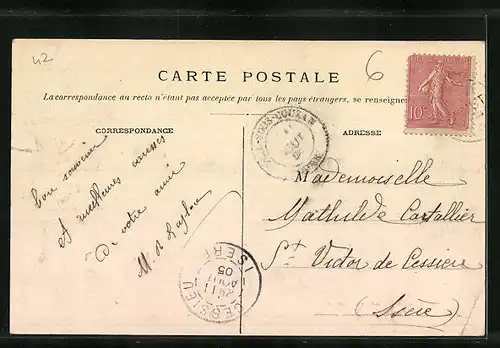 42
6
CARTE POSTALE
La correspondance au recto n'étant pas acceptée par tous les pays étrangers, se renseigner
CORRESPONDANCE
ADRESSE
10
SOUS-COUZAN
Bon souvenir
et meilleures caresses
De votre amie
CESSIEU
11
AOUT
05
ISERE
Mademoiselle
Mathilde Castallier
St Victor de Cessieu
(Isère)